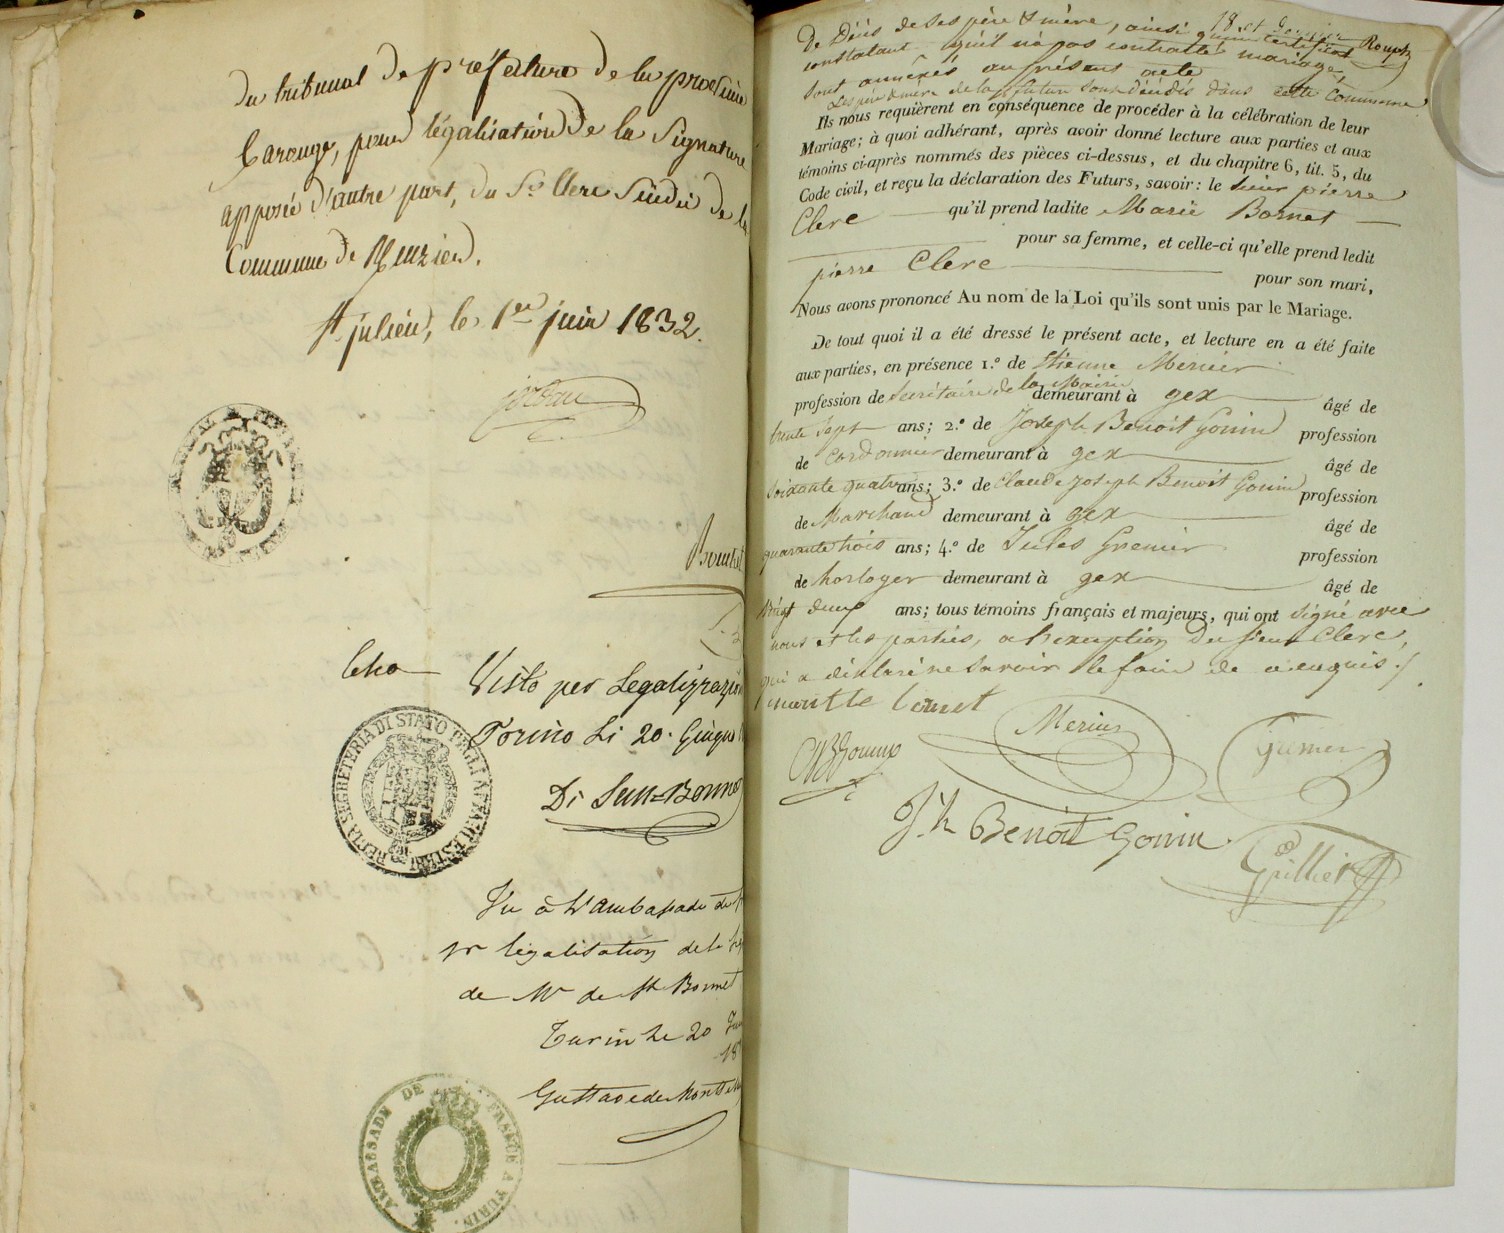 du tribunal de préfecture de la province
Carouge, pour légalisation de la Signature
apposée d'autre part, du Sr Clerc Sindic de la
Commune de
St julien, le 1er juin 1832.
jordan
TRIBUNAL DE
Visto per Legalizzazione
Torino Li 20. Giugno
Di San=
REGIA SEGRETERIA DI STATO PEGLI AFFARI ESTERI
Vu à L'ambassade de
pr légalisation de la
de Mr de St
Turin Le 20
18
Gustave de Monte
AMBASSADE DE FRANCE A TURIN.
De Décès de ses père & mère, ainsi qu'un certificat
constatant qu'il n'a pas contracté mariage,
sont annéxés au présent acte
Les père & mère de la future sont décédés dans cette Commune
Ils nous requièrent en conséquence de procéder à la célébration de leur
Mariage; à quoi adhérant, après avoir donné lecture aux parties et aux
témoins ci-après nommés des pièces ci-dessus, et du chapitre 6, tit. 5, du
Code civil, et reçu la déclaration des Futurs, savoir: le sieur pierre
Clerc qu'il prend ladite Marie Bornet
pour sa femme, et celle-ci qu'elle prend ledit
pierre Clerc pour son mari,
Nous avons prononcé Au nom de la Loi qu'ils sont unis par le Mariage.
De tout quoi il a été dressé le présent acte, et lecture en a été faite
aux parties, en présence 1.º de Etienne Mercier
profession de Secrétaire de la Mairie demeurant à gex âgé de
trente sept ans; 2.º de Joseph Benoit Gonin profession
de Cordonnier demeurant à gex âgé de
soixante quatre ans; 3.º de Claude Joseph Benoit Gonin profession
de Marchand demeurant à gex âgé de
quarante trois ans; 4.º de Jules Grenier profession
de horloger demeurant à gex âgé de
vingt deux ans; tous témoins français et majeurs, qui ont signé avec
nous et les parties, a l'exception du sieur Clerc,
qui a déclaré ne savoir le faire de ce enquis./
Mercier
Grenier
Jh Benoit Gonin